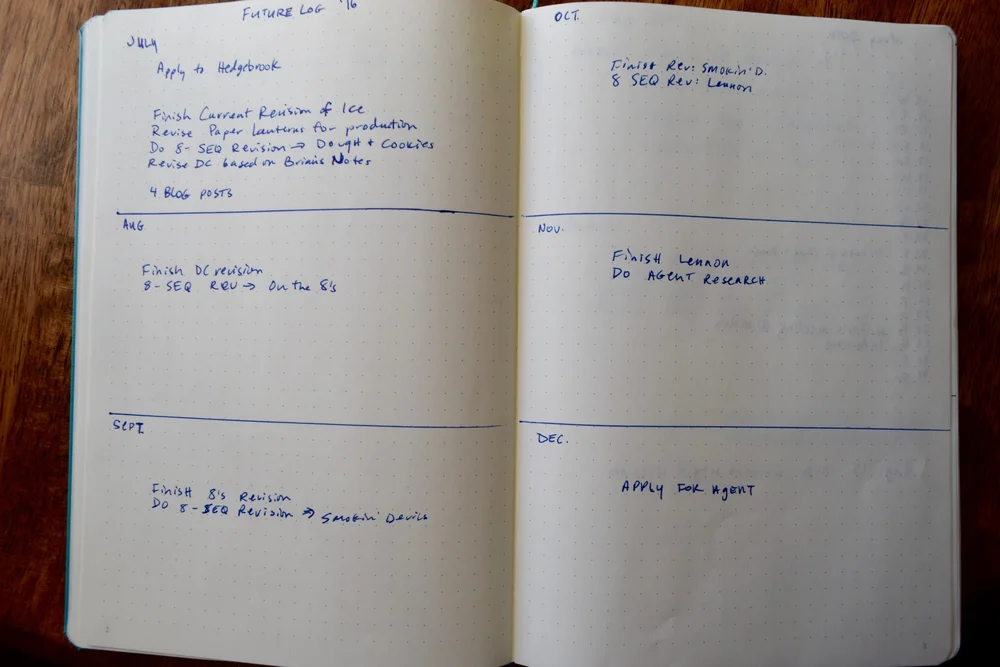 FUTURE LOG '16
JULY
Apply to Hedgebrook
Finish Current Revision of Ice
Revise Paper Lanterns for production
Do 8-SEQ Revision → Dough + Cookies
Revise DC based on Brian's Notes
4 BLOG POSTS
AUG
Finish DC revision
8-SEQ REV → On the 8's
SEPT.
Finish 8's Revision
Do 8-SEQ Revision → Smokin' Devils
2
OCT.
Finish Rev: Smokin' D.
8 SEQ Rev: Lennon
NOV.
Finish Lennon
DO AGENT RESEARCH
DEC.
APPLY FOR AGENT
3